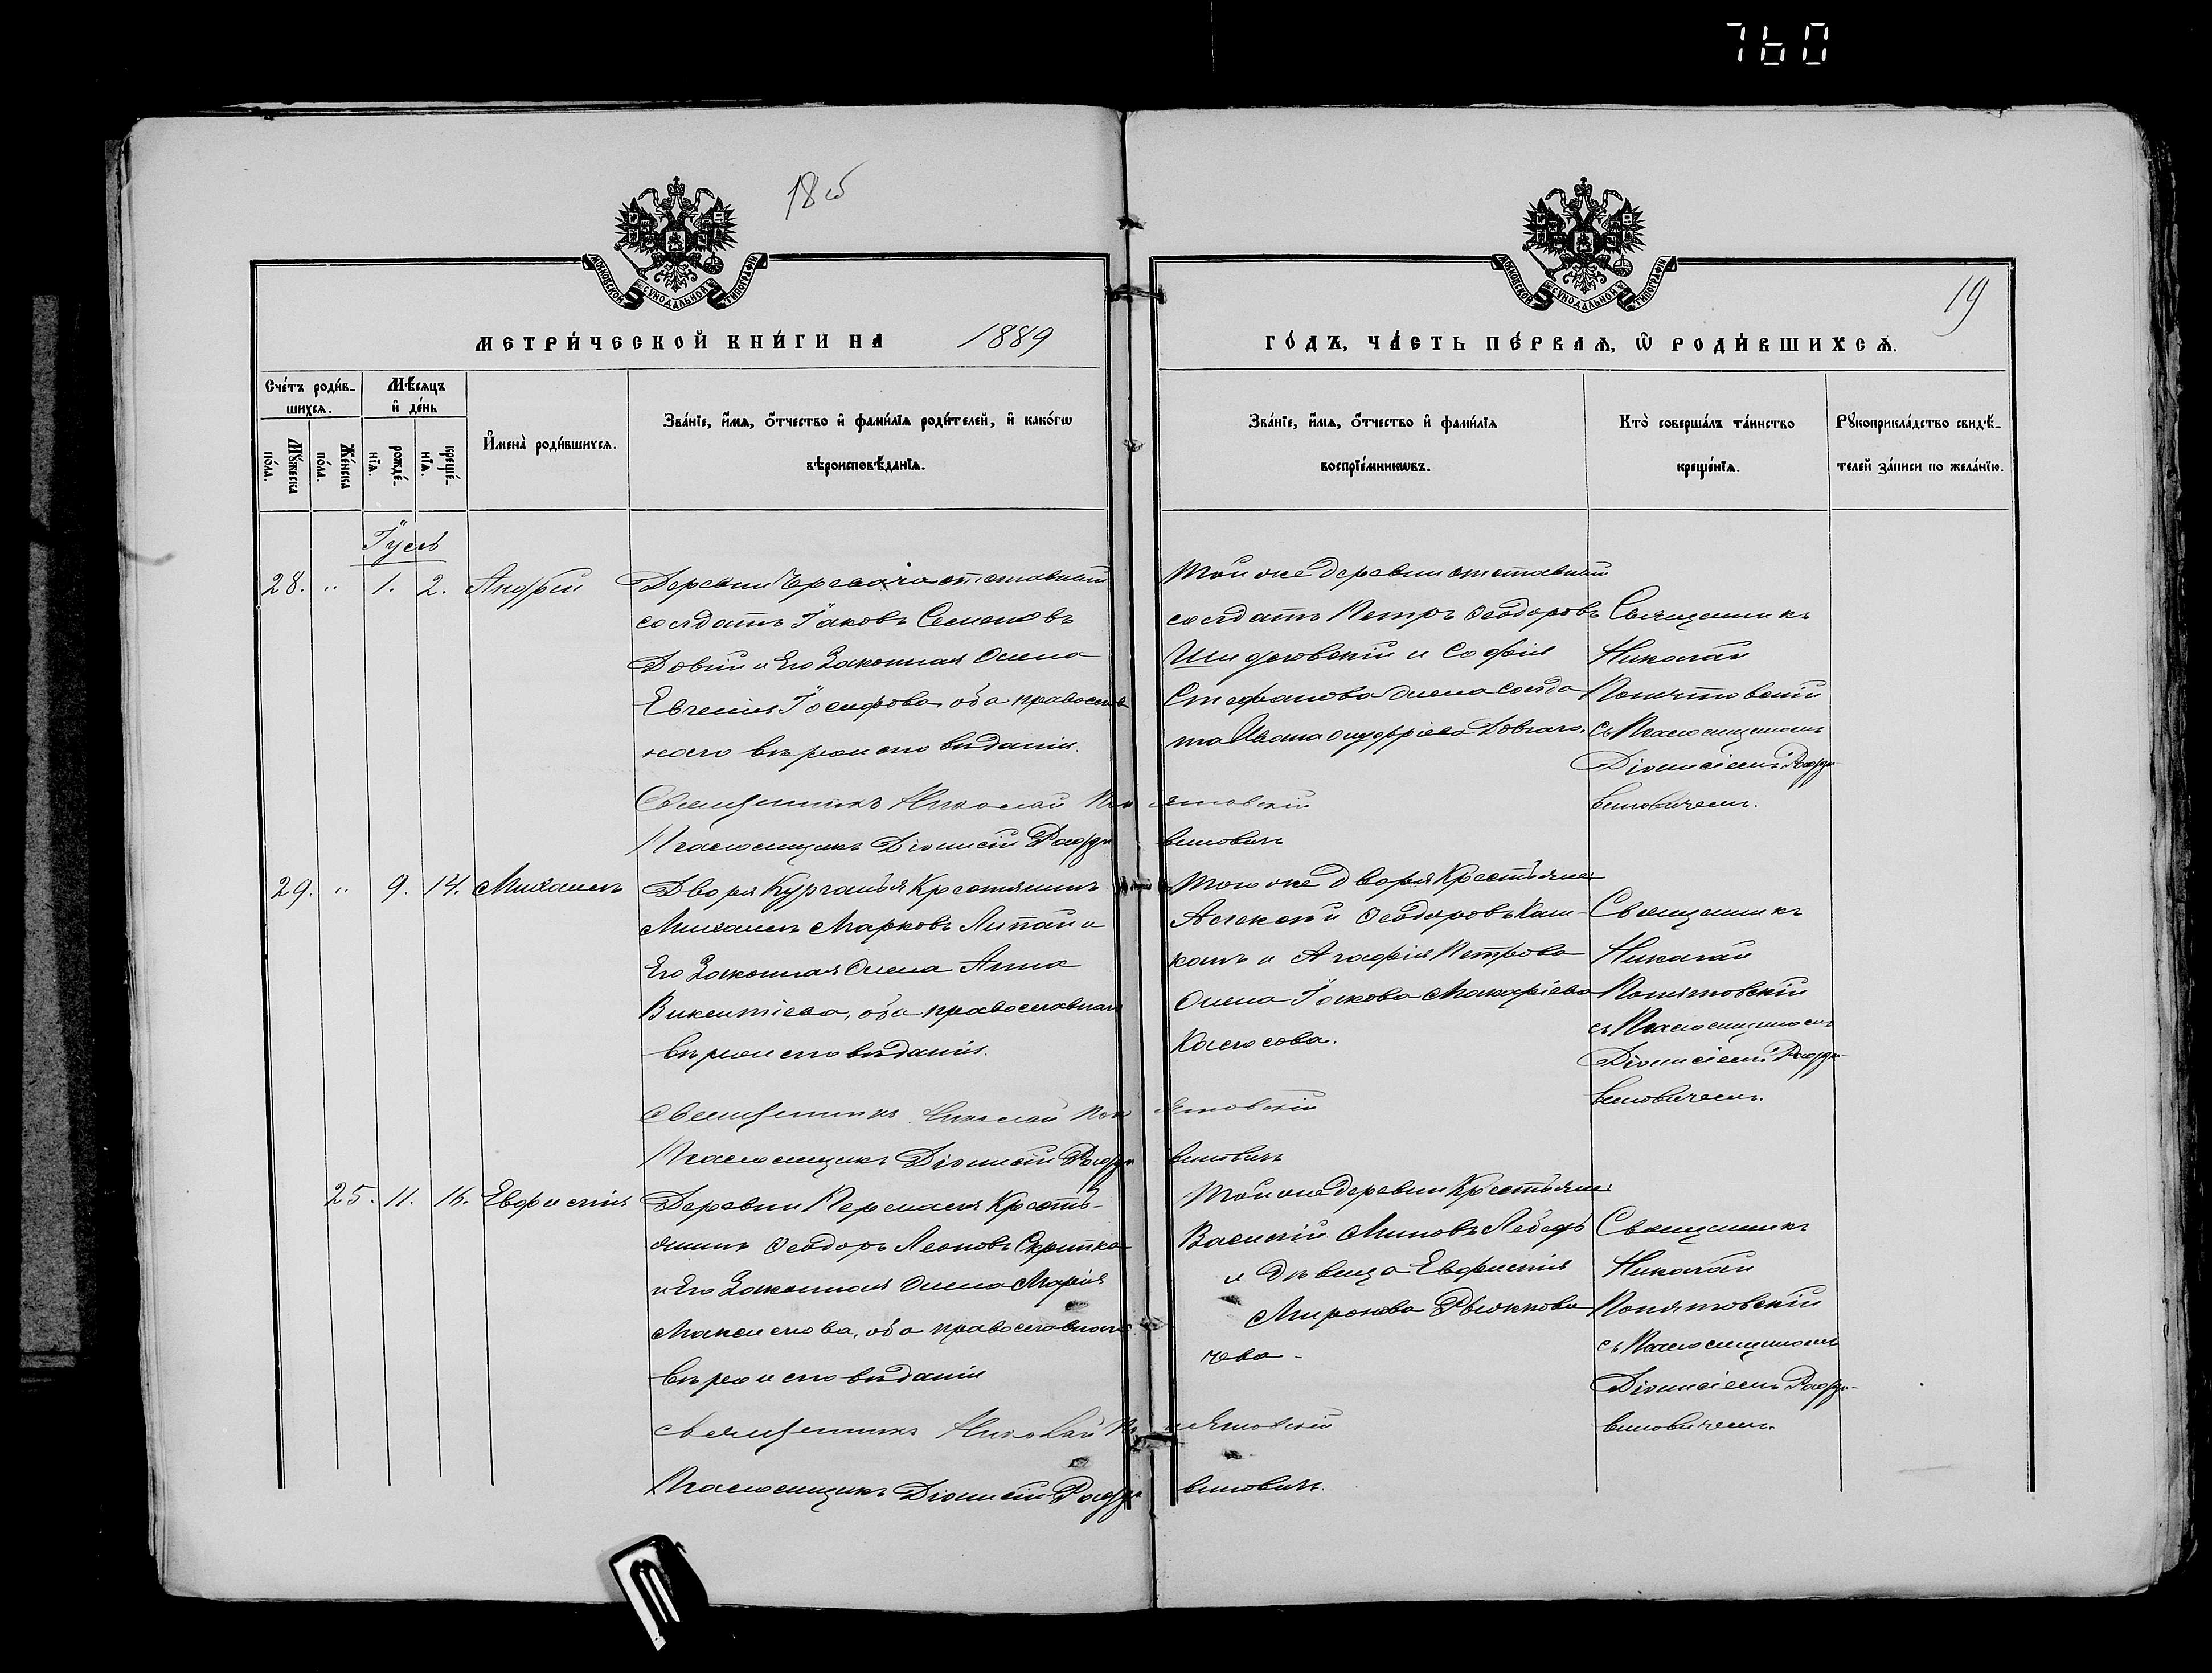 760
18 об
19
МОСКОВСКОЙ СѴНОДАЛЬНОЙ ТИПОГРАФІИ
МОСКОВСКОЙ СѴНОДАЛЬНОЙ ТИПОГРАФІИ
МЕТРИ́ЧЕСКОЙ КНИ́ГИ НА 1889
ГО́ДЪ, ЧА́СТЬ ПЕ́РВАЯ, Ѡ҆ РОДИ́ВШИХСѦ.
Сче́тъ роди́в-
шихсѧ.
Мѣ́сѧцъ
и҆ де́нь
Мꙋ́жеска
по́ла.
Же́нска
по́ла.
рожде́-
нїѧ.
креще́-
нїѧ.
И҆мена̀ роди́вшихсѧ.
Зва́нїе, и҆́мѧ, ѻ҆́тчество и҆ фами́лїѧ роди́телей, и҆ како́гѡ
вѣроисповѣ́данїѧ.
Зва́нїе, и҆́мѧ, ѻ҆́тчество и҆ фами́лїѧ
воспрїе́мникѡвъ.
Кто̀ соверша́лъ та́инство
креще́нїѧ.
Рꙋкоприкла́дство свидѣ́-
телей за́писи по жела́нїю.
Іуль
28. " 1. 2. Андрей
Деревни отставный
солдатъ Іаковъ Семеновъ
Довгий и Его Законная Жена
Евгения Іосифова, оба православ
наго вероисповѣдания.
Священникъ Николай Пон ятовский
Псаломщикъ Діонисий Винович
той же деревни отставный
солдатъ Петръ Ѳеодоровъ
и София
Стефанова жена солда
та Ивана Онуфриева Довгаго.
Священникъ
Николай
Понятовский
съ Псаломщикомъ
Діонисіемъ
виновичемъ.
29. " 9. 14. Михаилъ
Двора Курганья Крестянинъ
Михаилъ Марковъ Липай и
Его Законная Жена Анна
Викентіева, оба православнаго
вероисповѣдания.
Священникъ Николай Пон ятовский
Псаломщикъ Діонисий виновичъ
того же двора Крестьяне
Алексѣй Ѳеодоровъ Каш-
канъ и Агафія Петрова
Жена Іакова Макаріева
Колосова.
Священникъ
Николай
Понятовскій
съ Псаломщикомъ
Діонисіемъ
виновичемъ.
25. 11. 16. Евфимия
Деревни Перемаги Кресть-
янинъ Ѳеодоръ Леоновъ Скрипка
и Его Законная Жена Марія
Максимова, оба православнаго
вероисповѣдания
Священникъ Николай По нятовскій
Псаломщикъ Діонисий виновичъ.
той же деревни Крестьяне
Василий Миновъ Лебедь
и дѣвица Евфимия
Миронова
чева.
Священникъ
Николай
Понятовский
съ Псаломщикомъ
Діонисіемъ
виновичемъ.